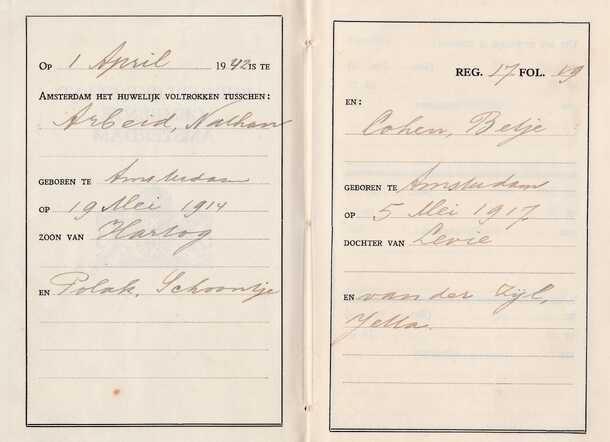 Op 1 April 1942 is te
Amsterdam het huwelijk voltrokken tusschen:
Arbeid, Nathan
geboren te Amsterdam
op 19 Mei 1914
zoon van Hartog
en Polak, Schoontje
Reg. 17 Fol.
en:
Cohen, Betje
geboren te Amsterdam
op 5 Mei 1917
dochter van Levie
en van der Zijl,
Jetta.